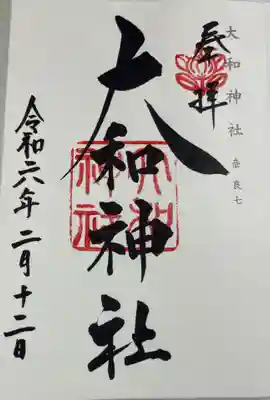 大和神社 奈良七
奉拝
大和神社
令和六年二月十二日